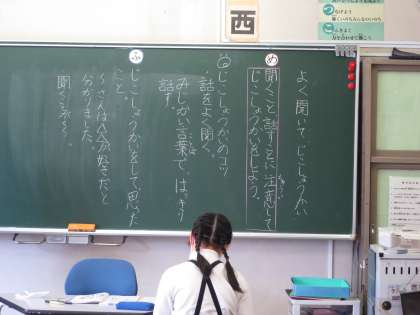 西
よく聞いて、じこしょうかい
め
聞くこと話すことに注意して
じこしょうかいをしよう。
じこしょうかいのコツ
・話をよく聞く。
みじかい言葉で、はっきり
話す。
ふ
じこしょうかいをして思った
こと。
〜さんは〜が好きだと
分かりました。